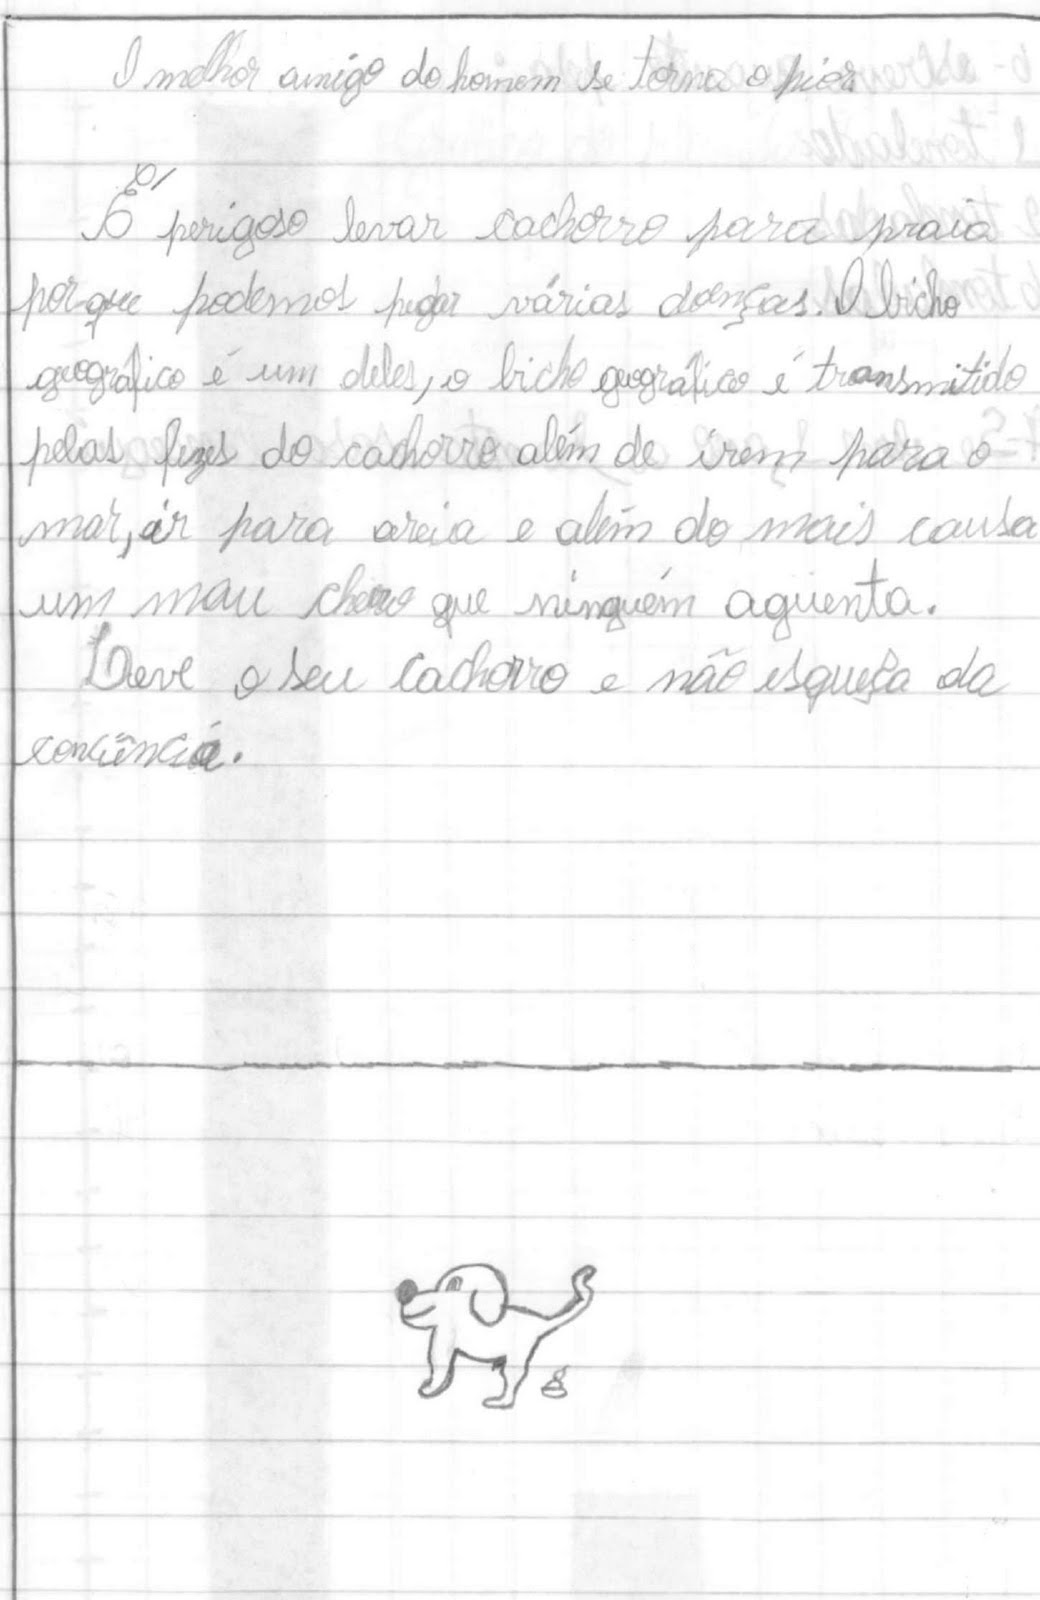 O melhor amigo do homem se torna o pior
É perigoso levar cachorro para praia
porque podemos pegar várias doenças. O bicho
geográfico é um deles, o bicho geográfico é transmitido
pelas fezes do cachorro além de irem para o
mar, ir para areia e além do mais causa
um mau cheiro que ninguém aguenta.
Leve o seu cachorro e não esqueça da
conciência.